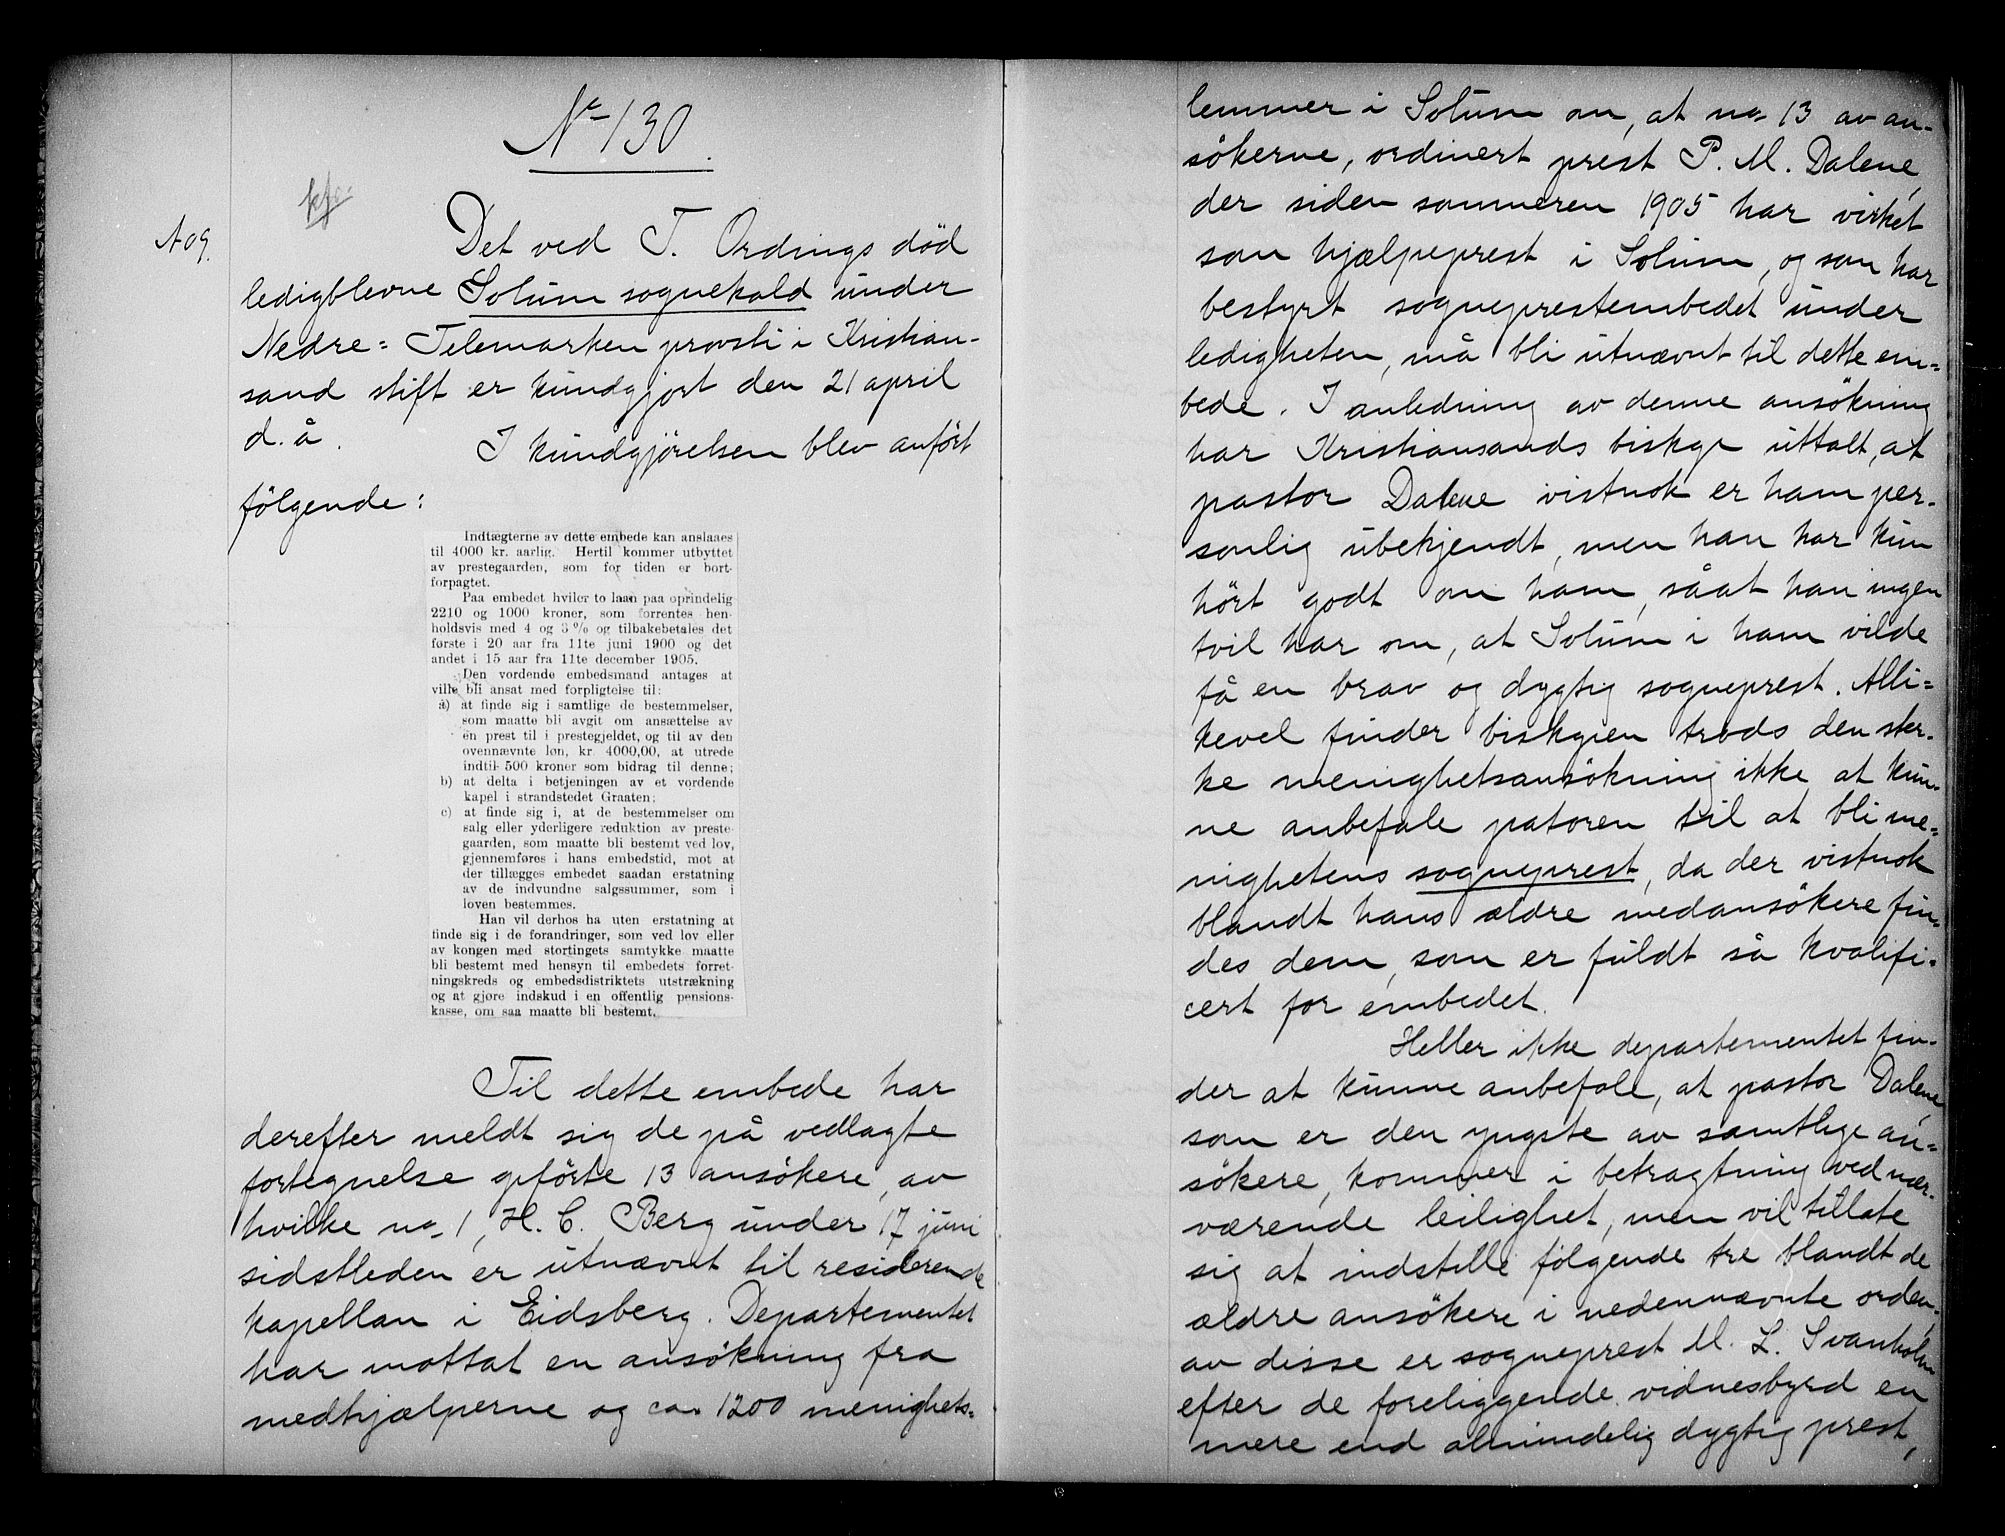 No 130
A 09.
Det ved T. Ordings död
ledigblevne Solum sognekald under
Nedre = Telemarken provsti i Kristian-
sand stift er kundgjort den 21 april
d. å.
I kundgjörelsen blev anført
fölgende:
Indtægterne av dette embede kan anslaaes
til 4000 kr. aarlig. Hertil kommer utbyttet
av prestegaarden, som for tiden er bort-
forpagtet.
Paa embedet hviler to laan paa oprindelig
2210 og 1000 kroner, som forrentes hen-
holdsvis med 4 og 3 % og tilbakebetales det
første i 20 aar fra 11te juni 1900 og det
andet i 15 aar fra 11te december 1905.
Den vordende embedsmand antages at
ville bli ansat med forpligtelse til:
a) at finde sig i samtlige de bestemmelser,
som maatte bli avgit om ansættelse av
en prest til i prestegjeldet, og til av den
ovennævnte løn, kr. 4000,00, at utrede
indtil 500 kroner som bidrag til denne;
b) at delta i betjeningen av et vordende
kapel i strandstedet Graaten;
c) at finde sig i, at de bestemmelser om
salg eller yderligere reduktion av preste-
gaarden, som maatte bli bestemt ved lov,
gjennemføres i hans embedstid, mot at
der tillægges embedet saadan erstatning
av de indvundne salgssummer, som i
loven bestemmes.
Han vil derhos ha uten erstatning at
finde sig i de forandringer, som ved lov eller
av kongen med stortingets samtykke maatte
bli bestemt med hensyn til embedets forret-
ningskreds og embedsdistriktets utstrækning
og at gjøre indskud i en offentlig pensions-
kasse, om saa maatte bli bestemt.
Til dette embede har
derefter meldt sig de på vedlagte
fortegnelse opförte 13 ansökere, av
hvilke no. 1, H. C. Berg under 17 juni
sidstleden er utnævnt til residerende
kapellan i Eidsberg. Departementet
har mottat en ansökning fra
medhjælperne og ca. 1200 menighets-
lemmer i Solum om, at no. 13 av an-
sökerne, ordinert prest P. M. Dalene,
der siden sommeren 1905 har virket
som hjælpeprest i Solum, og som har
bestyrt sogneprestembedet under
ledigheten, må bli utnævnt til dette em-
bede. I anledning av denne ansökning
har Kristiansands biskop uttalt, at
pastor Dalene vistnok er ham per-
sonlig ubekjendt, men han har kun
hört godt om ham, såat han ingen
tvil har om, at Solum i ham vilde
få en brav og dygtig sogneprest. Alli-
kevel finder biskopen trods den ster-
ke menighetsansökning ikke at kun-
ne anbefale patoren til at bli me-
nighetens sogneprest, da der vistnok
blandt hans ældre medansökere fin-
des dem, som er fuldt så kvalifi-
cert for embedet.
Heller ikke departementet fin-
der at kunne anbefale, at pastor Dalene,
som er den yngste av samtlige an-
sökere, kommer i betragtning ved nær-
værende leilighet, men vil tillate
sig at indstille fölgende tre blandt de
ældre ansökere i nedennævnte orden,
av disse er sogneprest M. L. Svanholm
efter de foreliggende vidnesbyrd en
mere end almindelig dygtig prest,